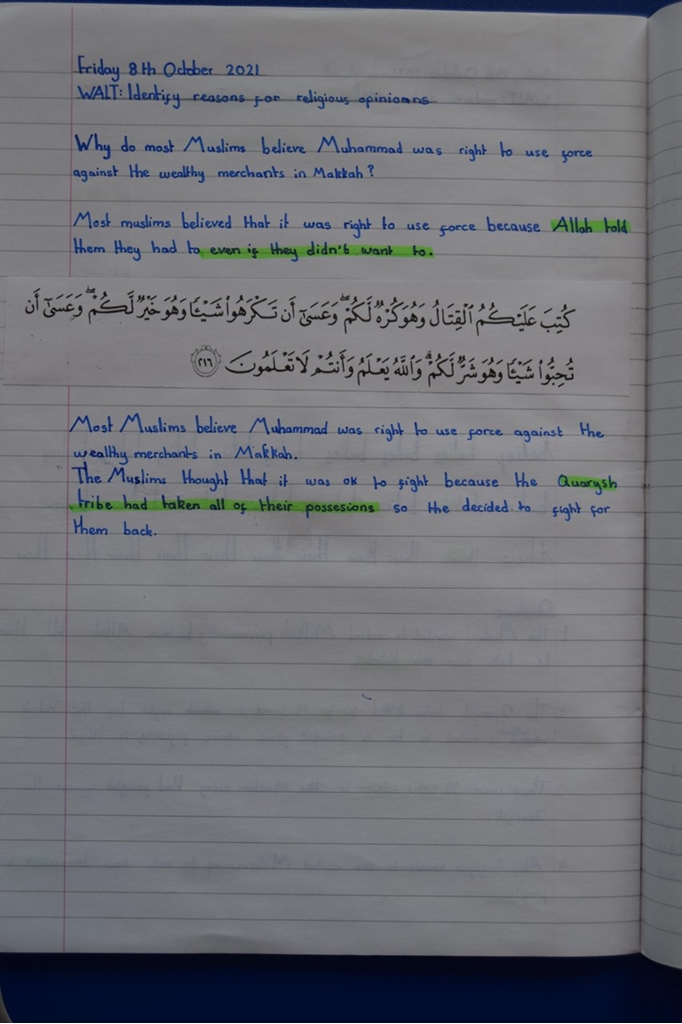 Friday 8th October 2021
WALT: Identify reasons for religious opinions
Why do most Muslims believe Muhammad was right to use force
against the wealthy merchants in Makkah?
Most muslims believed that it was right to use force because Allah told
them they had to even if they didn't want to.
كُتِبَ عَلَيْكُمُ ٱلْقِتَالُ وَهُوَ كُرْهٌ لَّكُمْ ۖ وَعَسَىٰٓ أَن تَكْرَهُوا۟ شَيْـًٔا وَهُوَ خَيْرٌ لَّكُمْ ۖ وَعَسَىٰٓ أَن
تُحِبُّوا۟ شَيْـًٔا وَهُوَ شَرٌّ لَّكُمْ ۗ وَٱللَّهُ يَعْلَمُ وَأَنتُمْ لَا تَعْلَمُونَ ٢١٦
Most Muslims believe Muhammad was right to use force against the
wealthy merchants in Makkah.
The Muslims thought that it was ok to fight because the Quarysh
tribe had taken all of their possesions so the decided to fight for
them back.